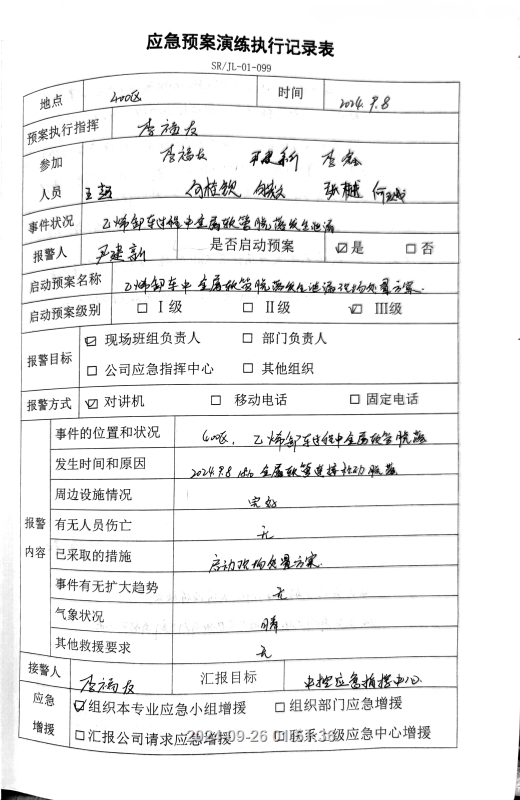 应急预案演练执行记录表
SR/JL-01-099
地点 400区 时间 2024.9.8
预案执行指挥 李福友
参加 李福友 李鑫
人员 王超
事件状况 乙烯卸车过程中金属软管脱落发生泄漏
报警人 尹建新 是否启动预案 ☑是 □否
启动预案名称 乙烯卸车中金属软管脱落发生泄漏现场处置方案.
启动预案级别 □Ⅰ级 □Ⅱ级 ☑Ⅲ级
报警目标 ☑ 现场班组负责人 □ 部门负责人
□ 公司应急指挥中心 □ 其他组织
报警方式 ☑ 对讲机 □ 移动电话 □ 固定电话
报警内容
事件的位置和状况 400区,乙烯卸车过程中金属软管脱落
发生时间和原因 2024.9.8 金属软管连接松动脱落
周边设施情况 完好
有无人员伤亡 无
已采取的措施 启动现场处置方案.
事件有无扩大趋势 无
气象状况 晴
其他救援要求 无
接警人 李福友 汇报目标 中控应急指挥中心
应急增援 ☑组织本专业应急小组增援 □组织部门应急增援
□汇报公司请求应急增援 □联系上级应急中心增援